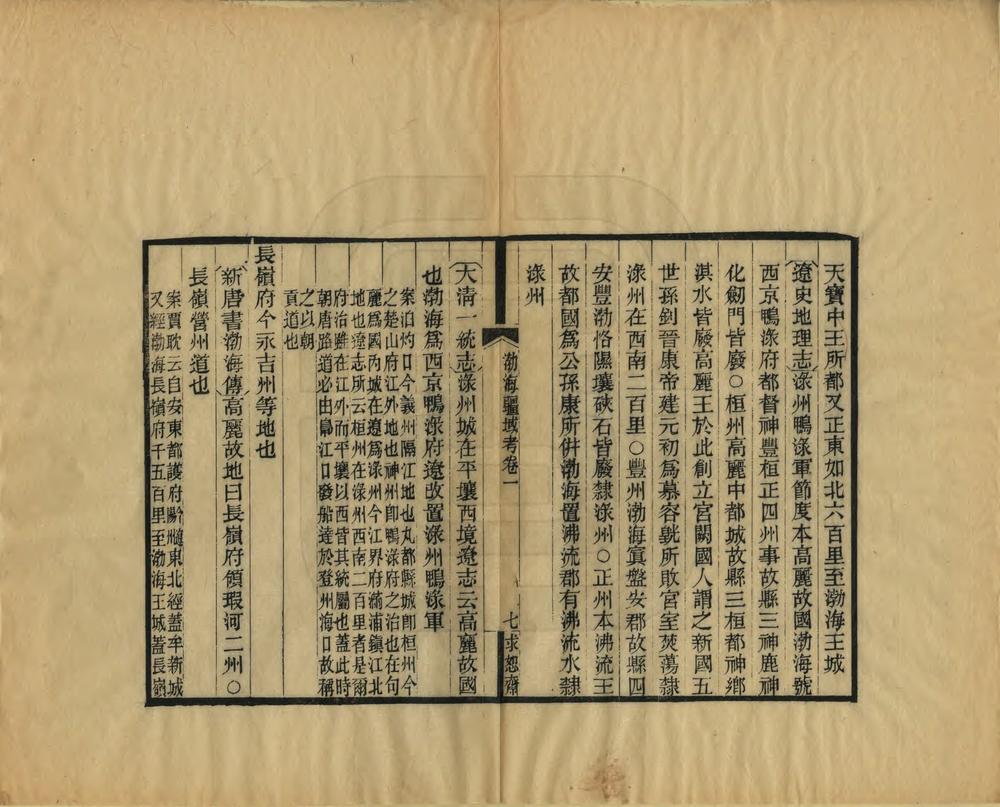 天寶中王所都又正東如北六百里至渤海王城
遼史地理志淥州鴨淥軍節度本高麗故國渤海號
西京鴨淥府都督神豐桓正四州事故縣三神鹿神
化劒門皆廢○桓州高麗中都城故縣三桓都神鄉
淇水皆廢高麗王於此創立宮闕國人謂之新國五
世孫釗晉康帝建元初爲慕容皝所敗宮室焚蕩隸
淥州在西南二百里○豐州渤海寘盤安郡故縣四
安豐渤恪隰壤硤石皆廢隸淥州○正州本沸流王
故都國爲公孫康所併渤海置沸流郡有沸流水隸
淥州
渤海疆域考卷一
七
求恕齋
大清一統志淥州城在平壤西境遼志云高麗故國
也渤海爲西京鴨淥府遼故置淥州鴨淥軍
案泊灼口今義州隔江地也丸都縣城卽桓州今
之楚山府江外地也神州卽鴨淥府之治也在句
麗爲國內城在遼爲淥州今江界府滿浦鎮江北
地也遼志所云桓州在淥州西南二百里者是爾
府治雖在江外而平壤以西皆其統屬也蓋此時
朝唐路道必由鼻江口發船達於登州海口故稱
之以朝
貢道也
長嶺府今永吉州等地也
新唐書渤海傳高麗故地曰長嶺府領瑕河二州○
長嶺營州道也
案賈耽云自安東都護府東北經蓋牟新城
又經渤海長嶺府千五百里至渤海王城蓋長嶺